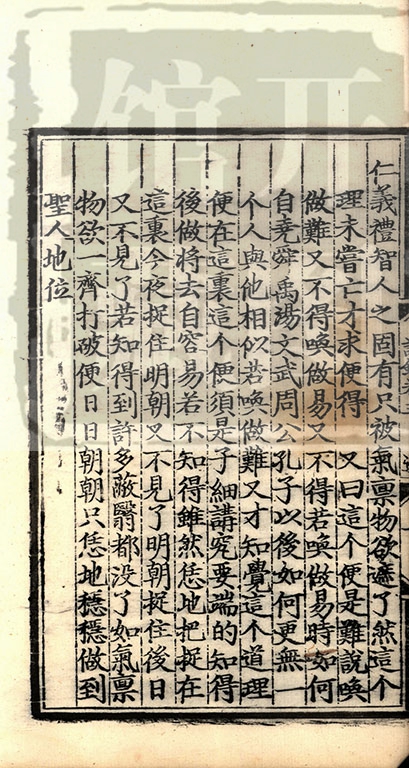 仁義禮智人之固有只被氣禀物欲遮了然這个
理未嘗亡才求便得　又曰這个便是難說喚
做難又不得喚做易又不得若喚做易時如何
自堯舜禹湯文武周公孔子以後如何更無一
个人與他相似若喚做難又才知覺這个道理
便在這裏這个便須是子細講究要端的知得
後做將去自容易若不知得雖然恁地把捉在
這裏今夜捉住明朝又不見了明朝捉住後日
又不見了若知得到許多蔽翳都没了如氣禀
物欲一齊打破便日日朝朝只恁地穩穩做到
聖人地位